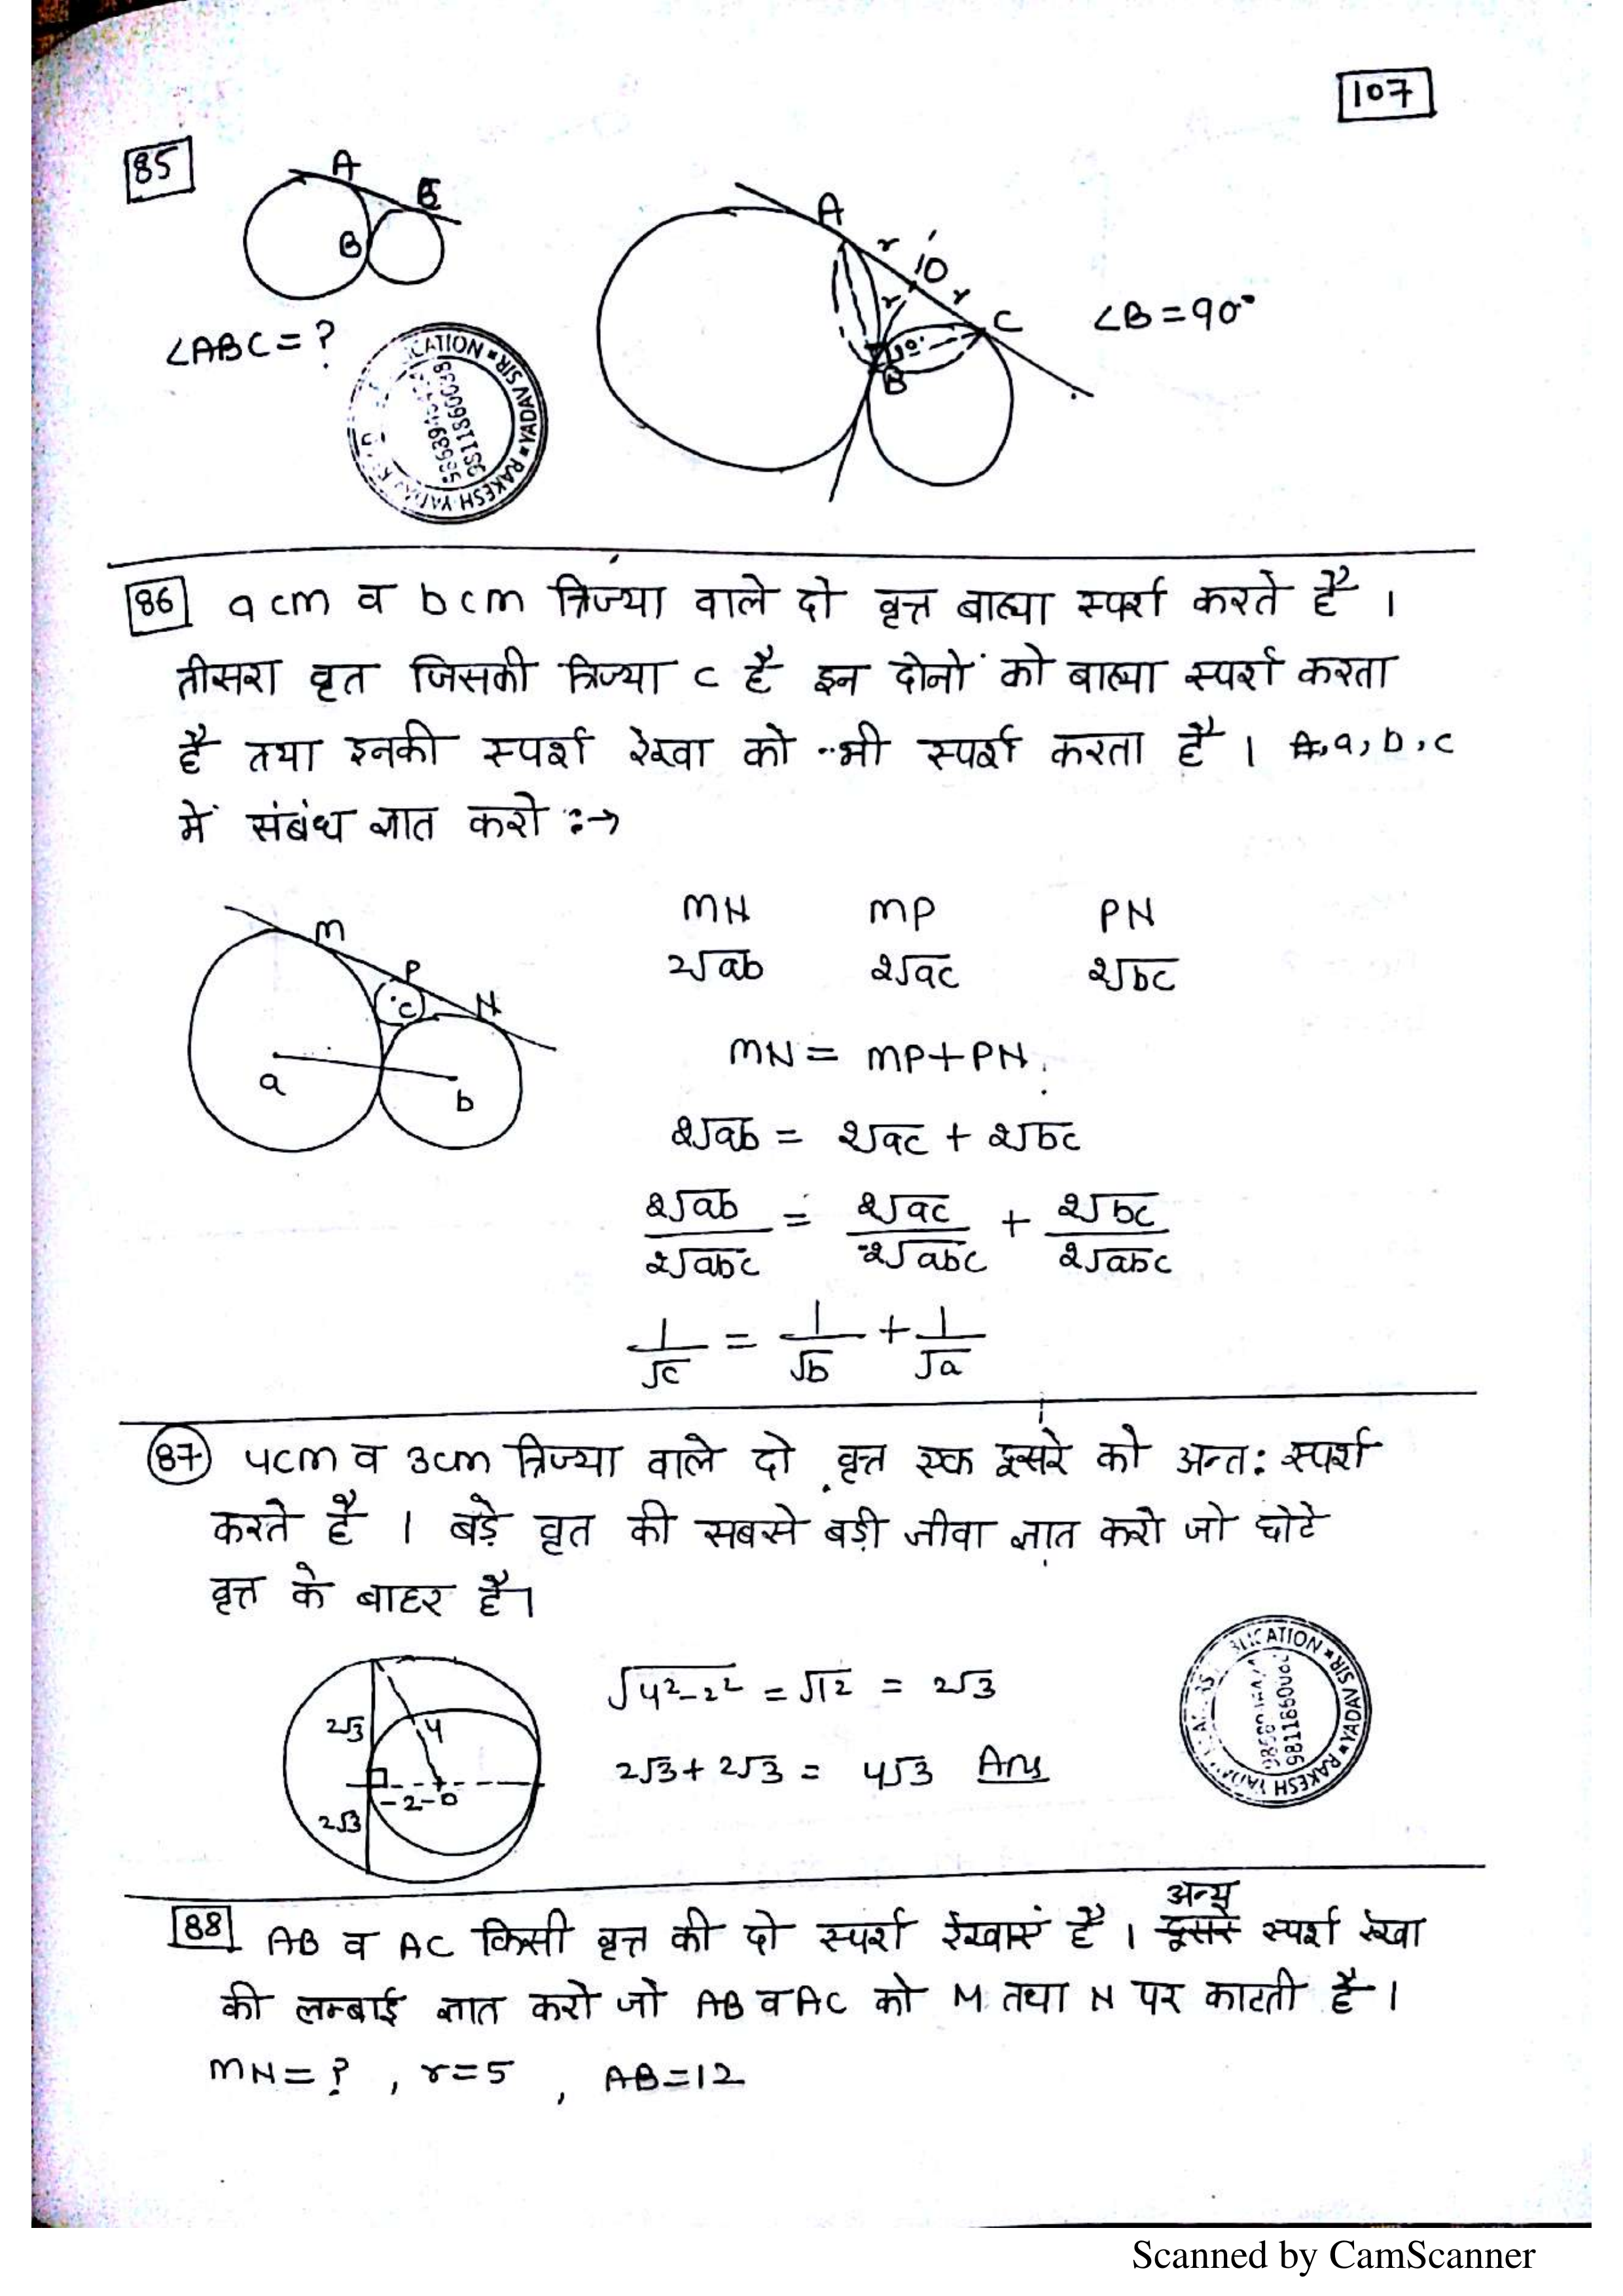 107
85
A
C
B
∠ABC = ?
A
r
O
r
r
C
B
∠B = 90°
86 a cm व b cm त्रिज्या वाले दो वृत्त बाह्या स्पर्श करते है ।
तीसरा वृत जिसकी त्रिज्या c है इन दोनों को बाह्या स्पर्श करता
है तथा इनकी स्पर्श रेखा को भी स्पर्श करता है । a, b, c
में संबंध ज्ञात करो :→
M
P
N
c
a
b
MN MP PN
2√ab 2√ac 2√bc
MN = MP + PN
2√ab = 2√ac + 2√bc
2√ab/2√abc = 2√ac/2√abc + 2√bc/2√abc
1/√c = 1/√b + 1/√a
87 4cm व 3cm त्रिज्या वाले दो वृत्त एक दूसरे को अन्त: स्पर्श
करते है । बड़े वृत की सबसे बड़ी जीवा ज्ञात करो जो छोटे
वृत्त के बाहर है।
2√3
4
2
O
2√3
√4²-2² = √12 = 2√3
2√3 + 2√3 = 4√3 Ans
88 AB व AC किसी वृत्त की दो स्पर्श रेखाएं है । अन्य स्पर्श रेखा
की लम्बाई ज्ञात करो जो AB व AC को M तथा N पर काटती है ।
MN = ? , r = 5 , AB = 12
Scanned by CamScanner